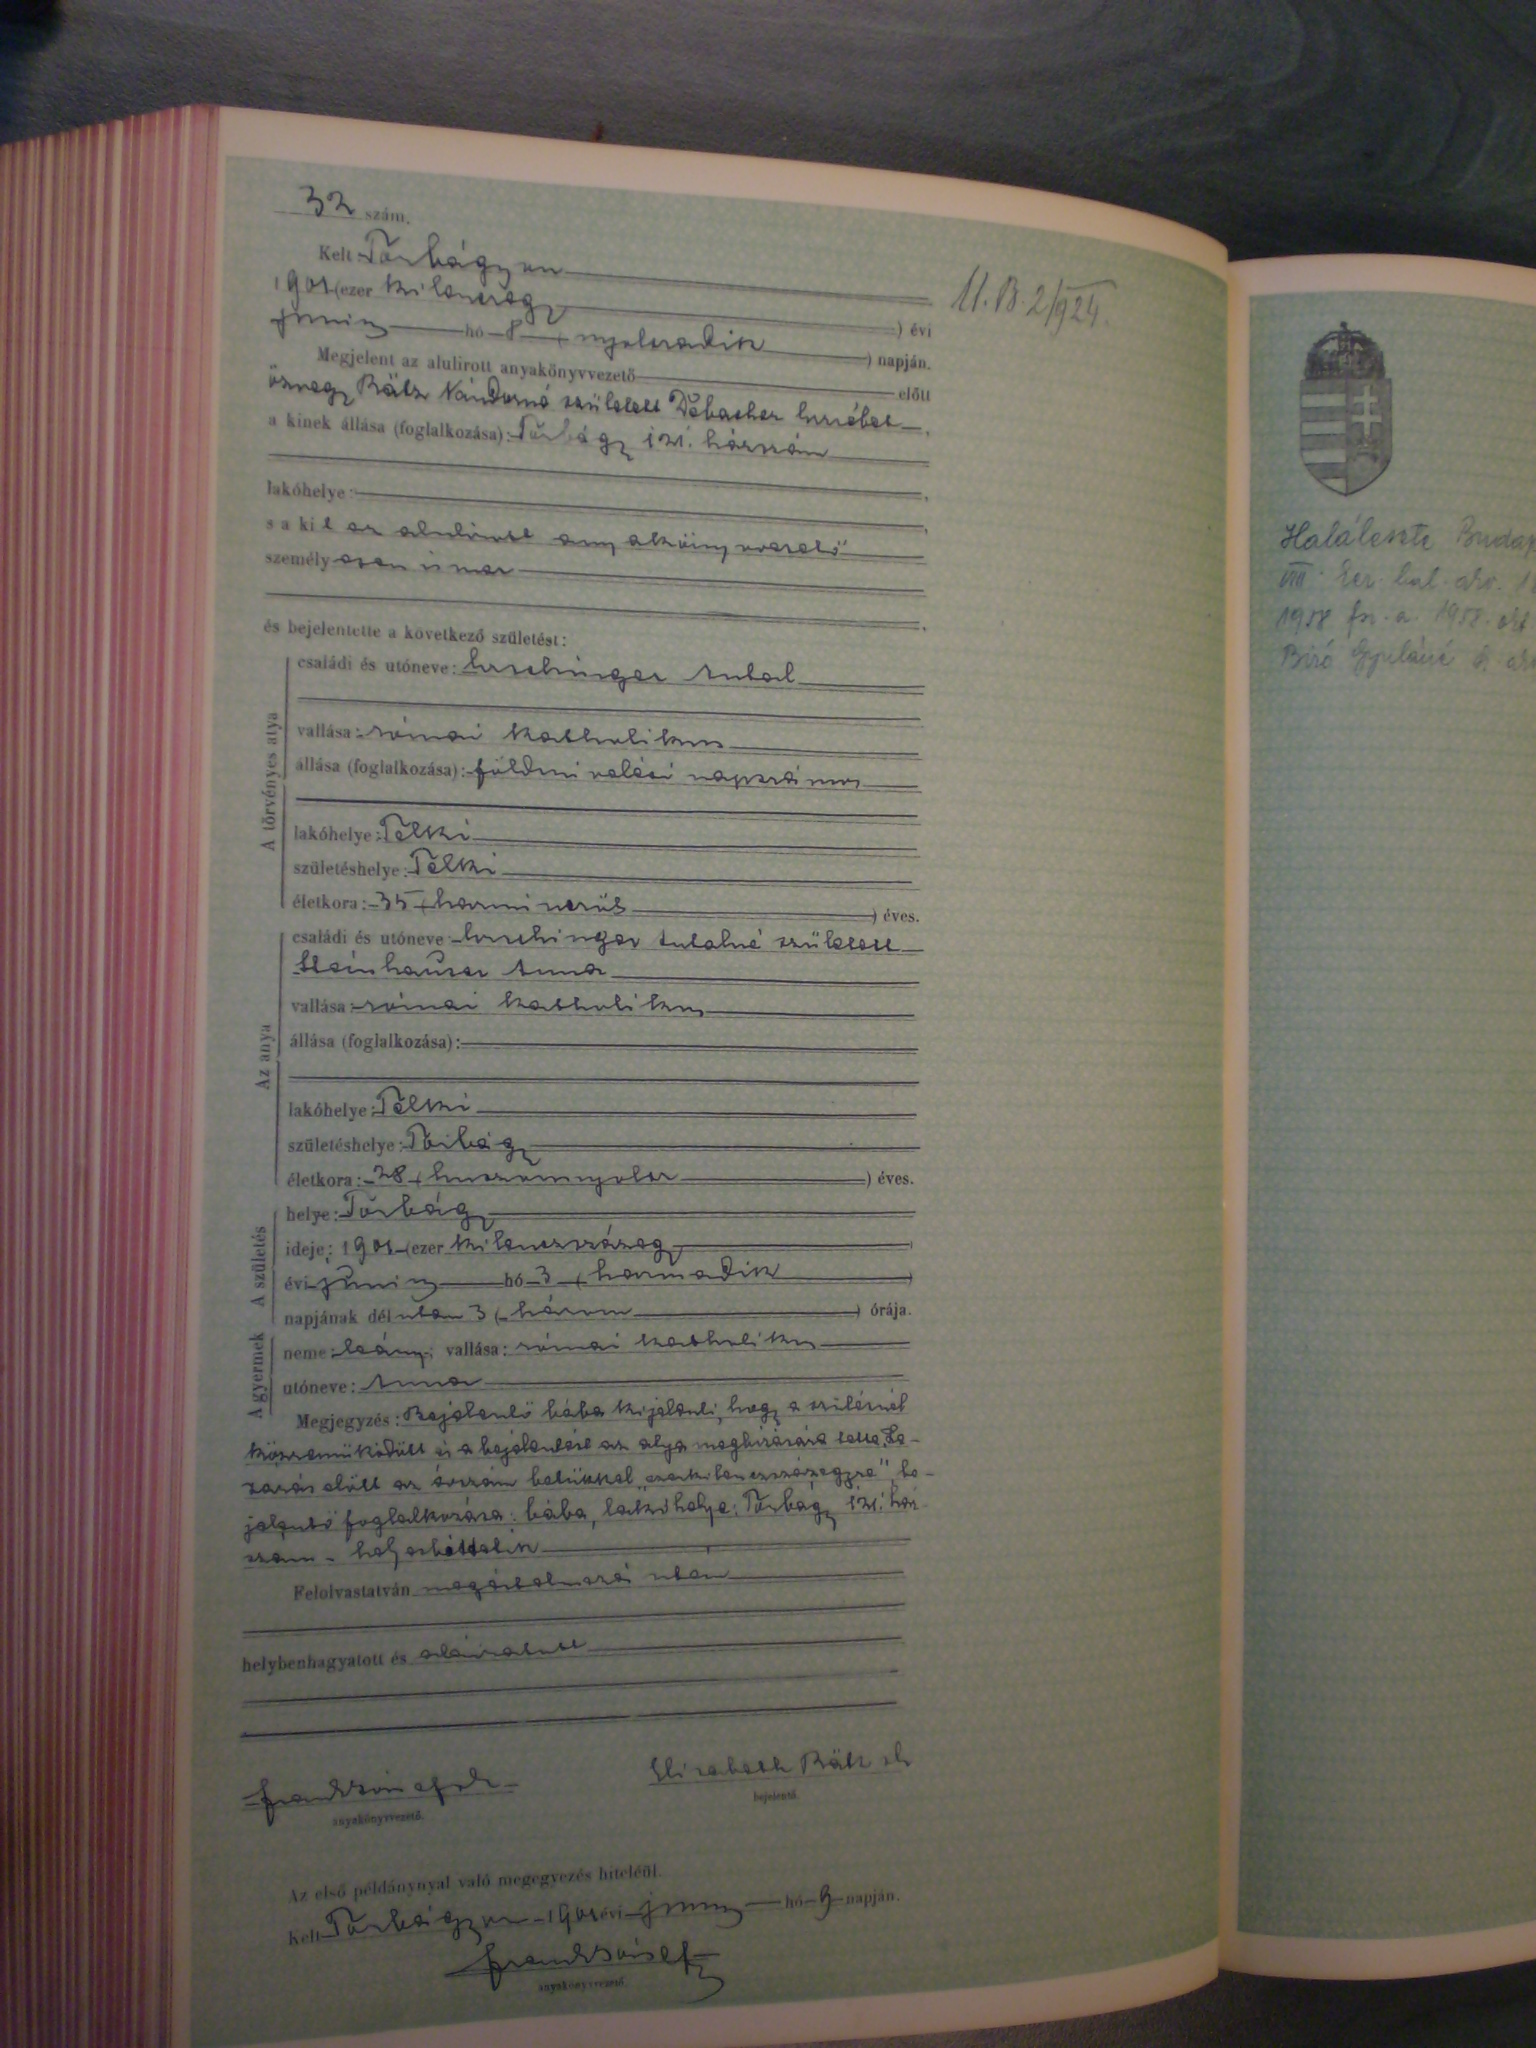 32 szám.
Kelt Torbágyon
1901 (ezer kilenczszázegy
) évi
junius hó 8 ( nyolczadik ) napján.
Megjelent az alulirott anyakönyvvezető előtt
özvegy Bälz Nándorné született
a kinek állása (foglalkozása): Torbágy 121. házszám
lakóhelye:
s a kit az alulirott anyakönyvvezető
személyesen ismer
és bejelentette a következő születést:
A törvényes atya
családi és utóneve: Antal
vallása: római katholikus
állása (foglalkozása): földmivelési napszámos
lakóhelye: Telki
születéshelye: Telki
életkora: 35 (harminczöt ) éves.
Az anya
családi és utóneve Antalné született
Steinhauser Anna
vallása: római katholikus
állása (foglalkozása):
lakóhelye: Telki
születéshelye: Torbágy
életkora: 28 (huszonnyolcz ) éves.
A születés
helye: Torbágy
ideje: 1901 (ezer kilenczszázegy )
évi junius hó 3 (harmadik )
napjának délután 3 (három ) órája.
A gyermek
neme: leány; vallása: római katholikus
utóneve: Anna
Megjegyzés: Bejelentő bába kijelenti, hogy a szülésnél
közreműködött és a bejelentést az atya megbizására tette. Le-
zárás előtt az évszám betűkkel "ezerkilenczszázegyre" be-
jelentő foglalkozása: bába, lakóhelye: Torbágy 121. ház-
szám - helyesbittetik
Felolvastatván megértelmezés után
helybenhagyatott és aláiratott
Elisabeth Bälz
anyakönyvvezető.
bejelentő.
Az első példánynyal való megegyezés hiteléül.
Kelt Torbágyon 1901 évi junius hó 9 napján.
anyakönyvvezető
2/924.
Halálesete Budap
VIII. ker. hal. akv.
1958 1958. okt
Biró Gyuláné